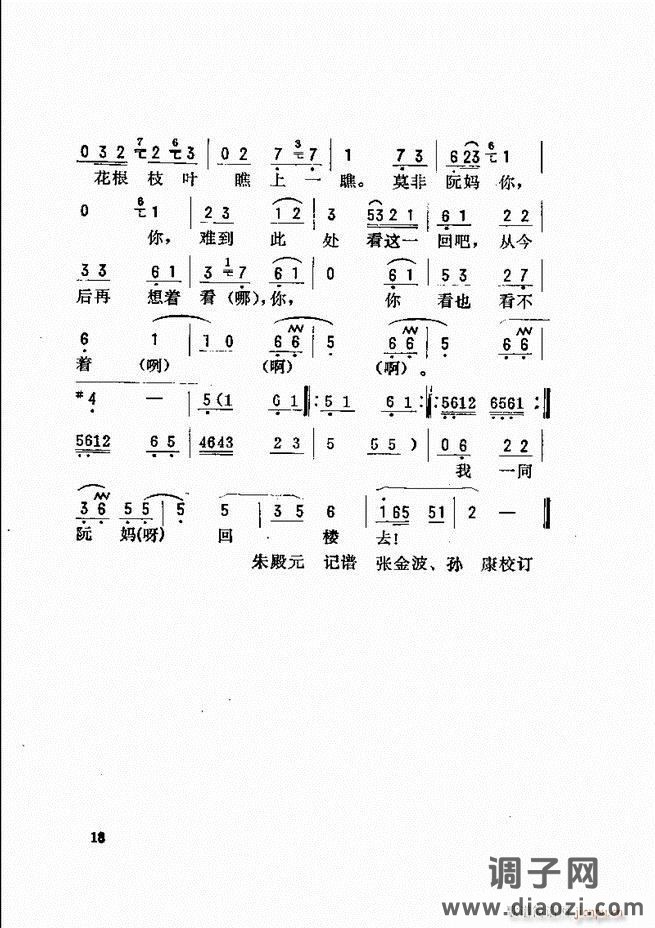 0 3 2 2 3 | 0 2 7 7 | 1 7 3 | 6 23 1 |
花根 枝 叶 瞧 上 一 瞧。 莫非 阮妈 你，
0 1 | 2 3 1 2 | 3 5321 | 6 1 2 2 |
你， 难到 此 处 看这一 回吧，从今
3 3 6 1 | 3 7 6 1 | 0 6 1 | 5 3 2 7 |
后再 想着 看(哪)，你， 你 看也 看不
6 1 | 1 0 6 6 | 5 6 6 | 5 6 6 |
着 (咧) (啊) (啊)。
#4 — | 5 (1 6 1 ‖: 5 1 6 1 :‖: 5612 6561 :‖
5612 6 5 | 4643 2 3 | 5 5 5 ) | 0 6 2 2 |
我 一同
3 6 5 5 | 5 5 | 3 5 6 | 165 51 | 2 — ‖
阮 妈(呀) 回 楼 去！
朱殿元 记谱 张金波、孙 康校订
18
调子网
www.diaozi.com